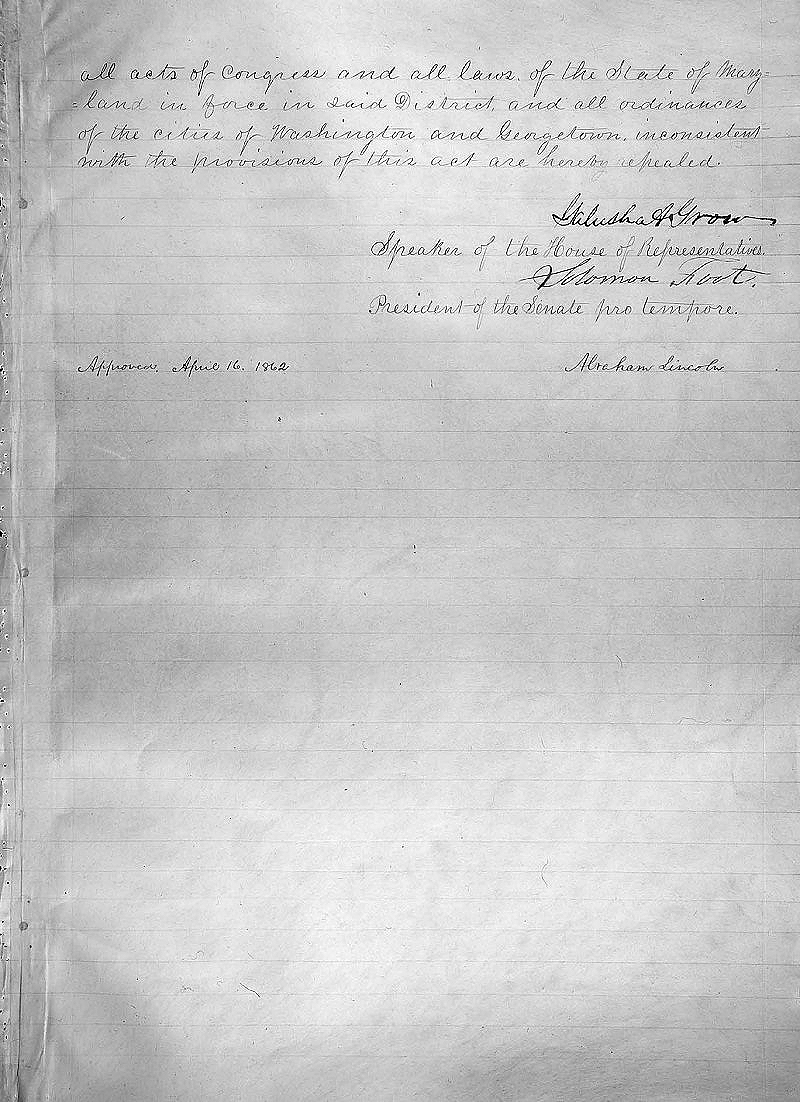 all acts of Congress and all laws of the State of Mary=
=land in force in said District, and all ordinances
of the cities of Washington and Georgetown, inconsistent
with the provisions of this act are hereby repealed.
Galusha A Grow
Speaker of the House of Representatives.
Solomon Foot.
President of the Senate pro tempore.
Approved, April 16. 1862
Abraham Lincoln